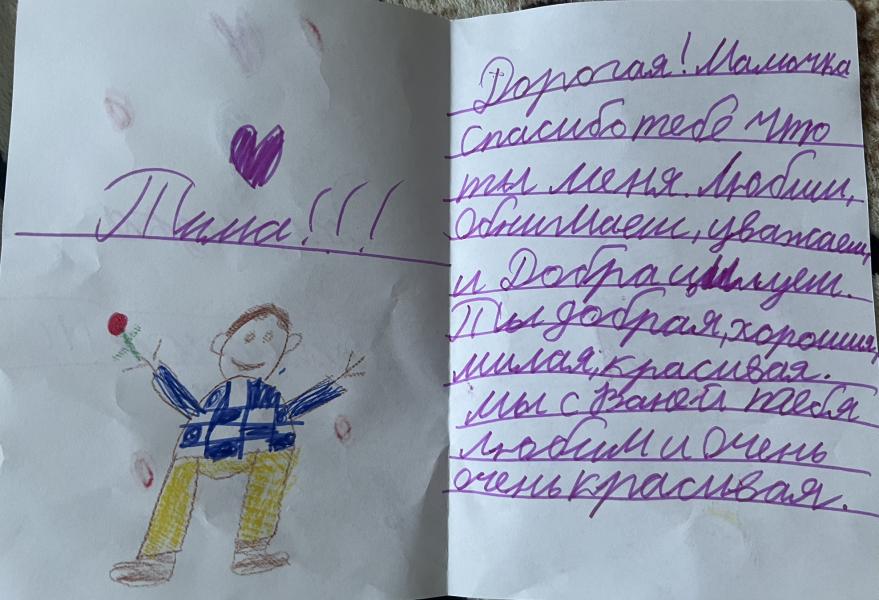 Тима!!!
Дорогая! Мамочка
спасибо тебе что
ты меня любиш,
обнимаеш, уважаеш,
и Добра
Ты добрая, хорошия,
милая, красивая.
мы с Ваней тебя
любим и очень
очень красивая.